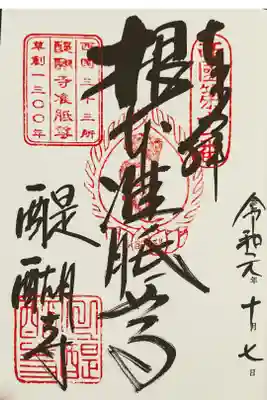 奉拝
西國第十一番
令和元年十月七日
根本准胝尊
西国三十三所
醍醐寺准胝堂
草創一三〇〇年
醍醐寺